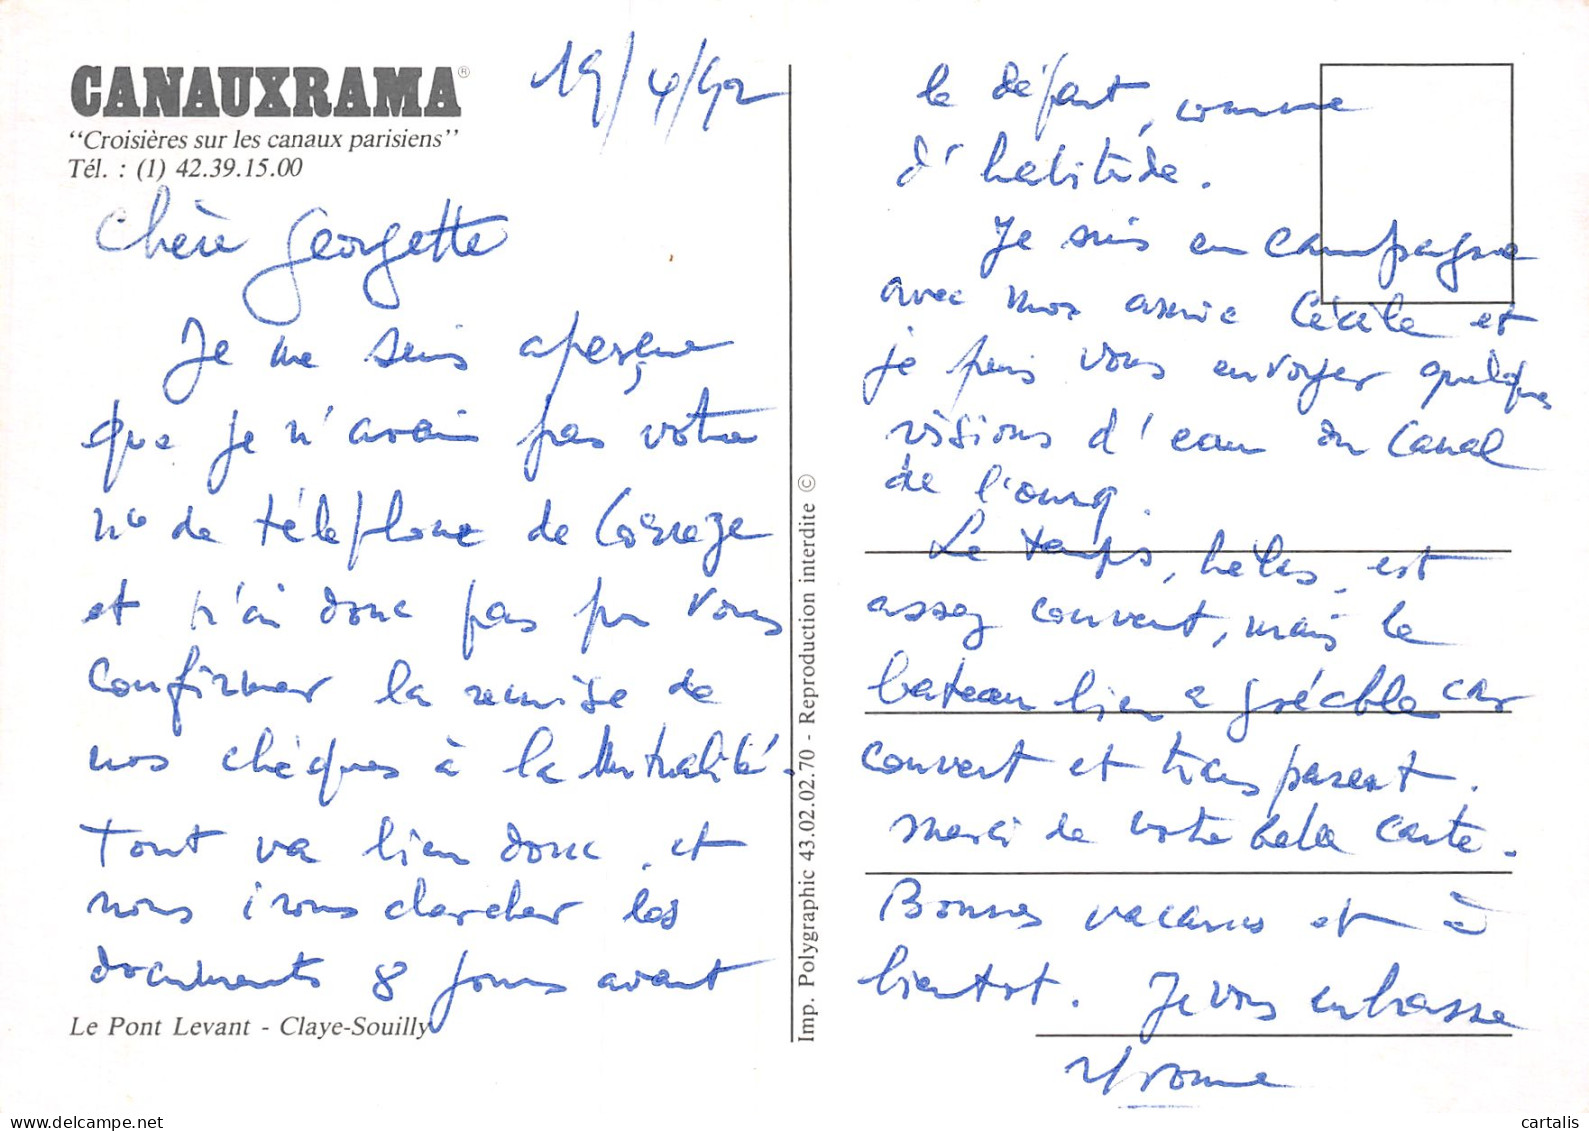 CANAUXRAMA®
"Croisières sur les canaux parisiens"
Tél. : (1) 42.39.15.00
19/4/92
Chère Georgette
Je me suis aperçue
que je n'avais pas votre
n° de téléphone de Corrèze
et n'ai donc pas pu vous
confirmer la remise de
nos chèques à la Mutualité.
Tout va bien donc, et
nous irons chercher les
documents 8 jours avant
Le Pont Levant - Claye-Souilly
Imp. Polygraphic 43.02.02.70 - Reproduction interdite ©
le départ, comme
d'habitude.
Je suis en campagne
avec mon amie Cécile et
je puis vous envoyer quelques
visions d'eau du Canal
de l'ourcq.
Le temps, hélas, est
assez couvert, mais le
bateau bien agréable car
couvert et transparent.
Merci de votre belle carte.
Bonnes vacances et à
bientôt. Je vous embrasse
Yvonne
cartalis
www.delcampe.net